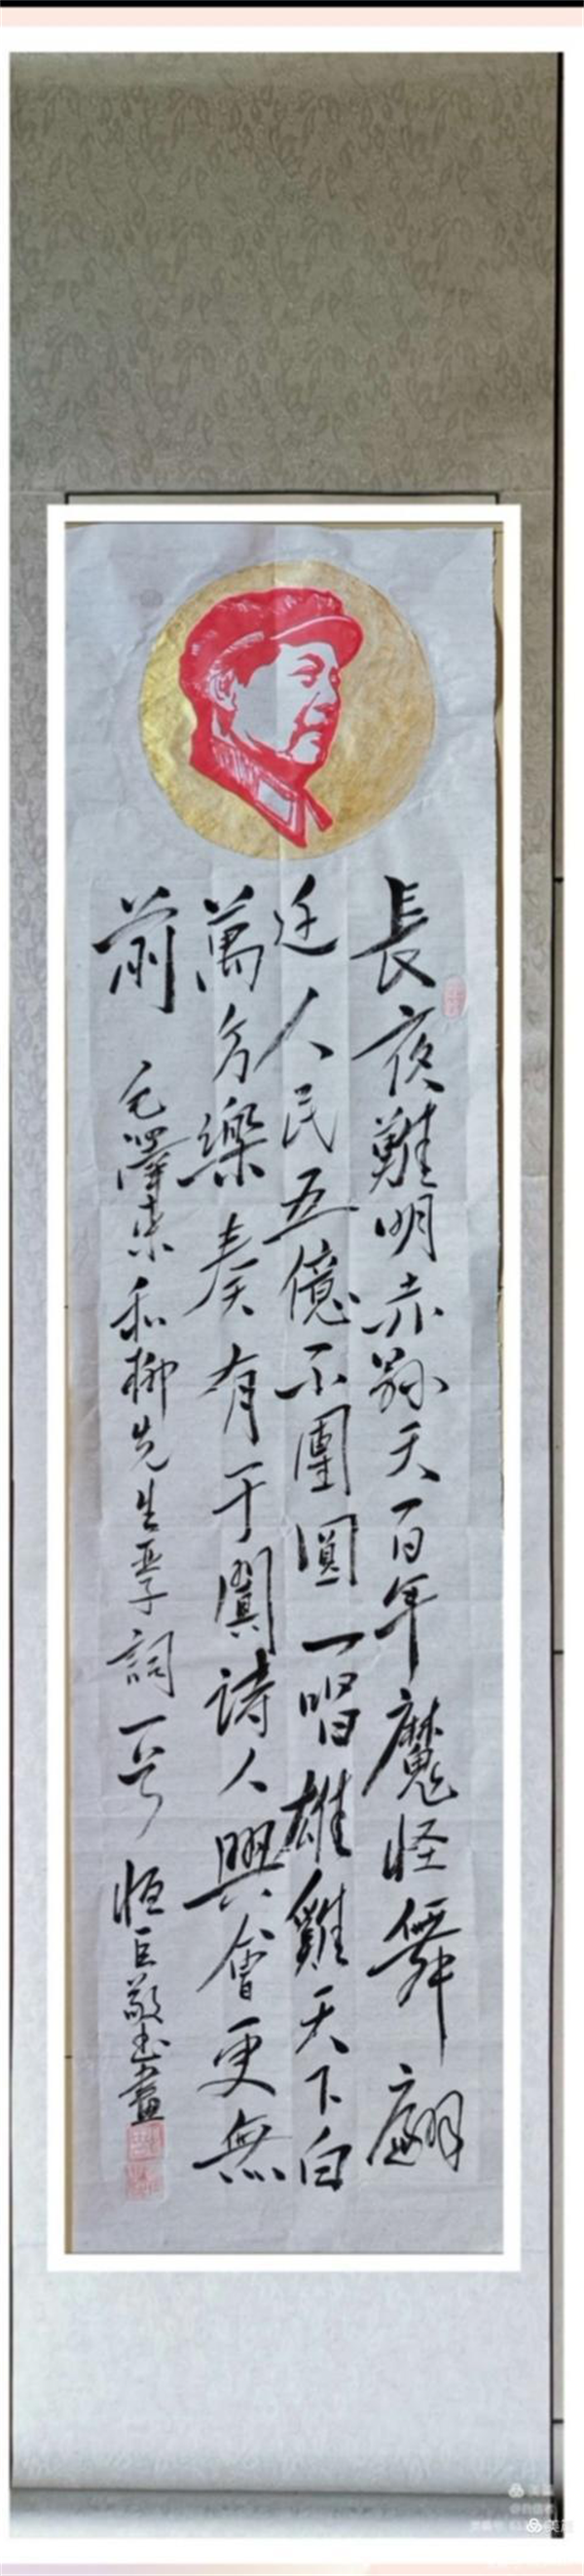 長夜難明赤縣天百年魔怪舞翩
迁人民五億不團圓一唱雄雞天下白
萬方樂奏有于闐詩人興會更無
前 毛澤東和柳先生亞子詞一首 恒巨敬书畫
美篇
美篇